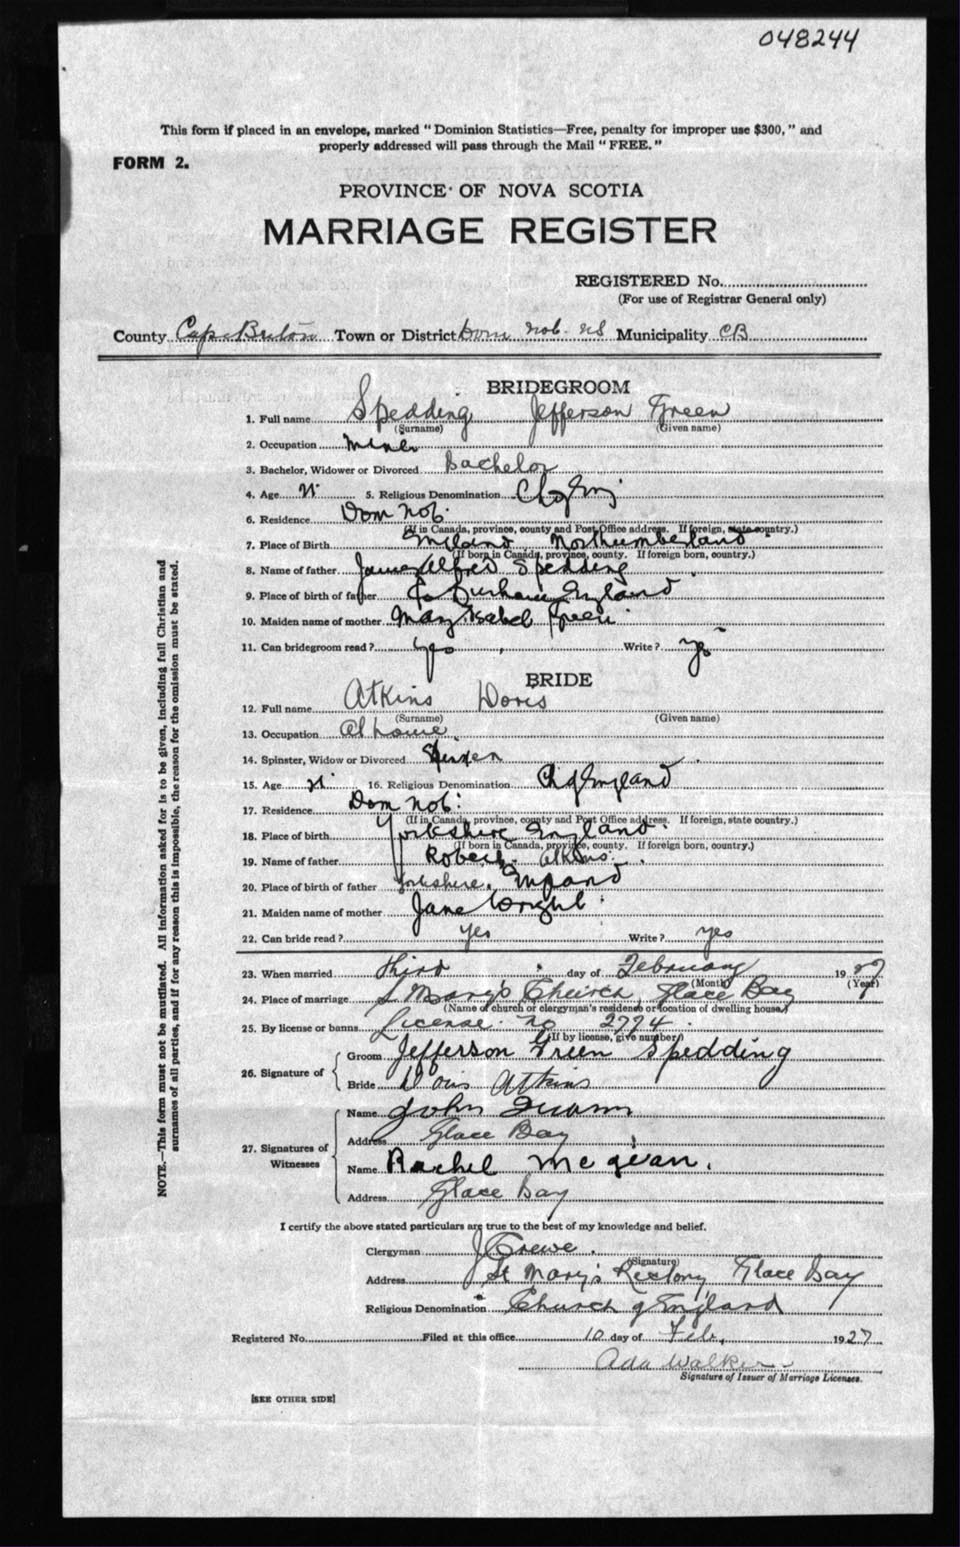 048244
This form if placed in an envelope, marked "Dominion Statistics—Free, penalty for improper use $300," and
properly addressed will pass through the Mail "FREE."
FORM 2.
PROVINCE OF NOVA SCOTIA
MARRIAGE REGISTER
REGISTERED No.
(For use of Registrar General only)
County Cape Breton Town or District Dom Nob. NS Municipality CB
BRIDEGROOM
1. Full name Spedding Jefferson Green
(Surname) (Given name)
2. Occupation Miner
3. Bachelor, Widower or Divorced Bachelor
4. Age 5. Religious Denomination Ch of Eng
6. Residence Dom Nob.
(If in Canada, province, county and Post Office address. If foreign, state country.)
7. Place of Birth England Northumberland
(If born in Canada, province, county. If foreign born, country.)
8. Name of father James Alfred Spedding
9. Place of birth of father Co Durham England
10. Maiden name of mother Mary Isabel Green
11. Can bridegroom read? yes Write? yes
BRIDE
12. Full name Atkins Doris
(Surname) (Given name)
13. Occupation At home
14. Spinster, Widow or Divorced
15. Age 16. Religious Denomination Ch of England
17. Residence Dom Nob.
(If in Canada, province, county and Post Office address. If foreign, state country.)
18. Place of birth Yorkshire England.
(If born in Canada, province, county. If foreign born, country.)
19. Name of father Robert Atkins.
20. Place of birth of father Yorkshire, England
21. Maiden name of mother Jane Wright
22. Can bride read? yes Write? yes
23. When married third day of February 1927
(Month) (Year)
24. Place of marriage St Mary's Church, Glace Bay
(Name of church or clergyman's residence or location of dwelling house)
25. By license or banns License. no 2774.
(If by license, give number)
26. Signature of Groom Jefferson Green Spedding
Bride Doris Atkins
27. Signatures of Witnesses Name John
Address Glace Bay
Name Rachel
Address Glace Bay
I certify the above stated particulars are true to the best of my knowledge and belief.
Clergyman J Crewe.
(Signature)
Address St Mary's Rectory Glace Bay
Religious Denomination Church of England
Registered No. Filed at this office 10 day of Feb. 1927
Ada Walker
Signature of Issuer of Marriage Licenses.
[SEE OTHER SIDE]
NOTE.—This form must not be mutilated. All information asked for is to be given, including full Christian and
surnames of all parties, and if for any reason this is impossible, the reason for the omission must be stated.